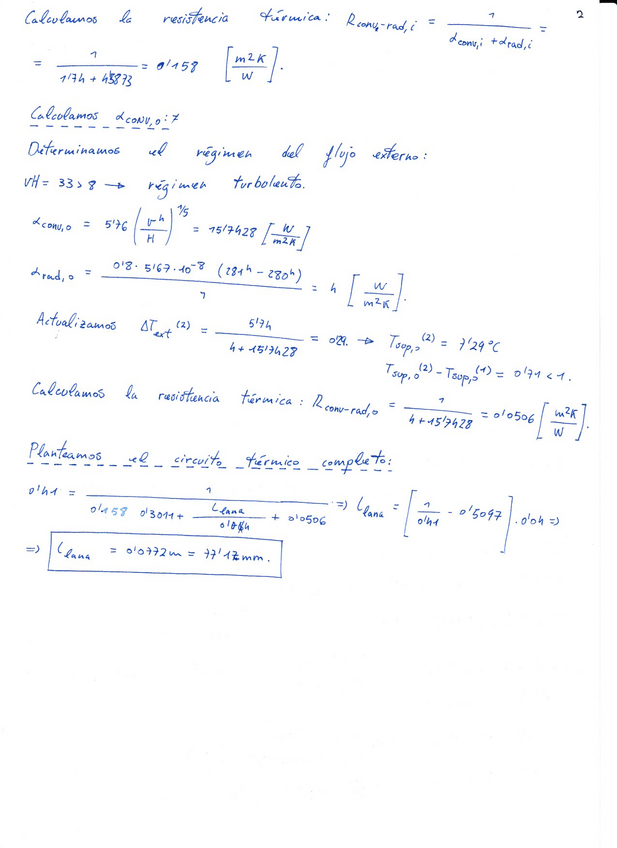 2
Calculamos la resistencia térmica: Rconv-rad,i = 1 / (αconv,i + αrad,i) =
= 1 / (1'74 + 4'5873) = 0'158 [m2K / W].
Calculamos αconv,o:
Determinamos el régimen del flujo externo:
vH = 33 > 8 → régimen turbolento.
αconv,o = 5'76 (v^4 / H)^1/5 = 15'7428 [W / m2K]
αrad,o = 0'8 · 5'67·10^-8 (281^4 - 280^4) / 1 = 4 [W / m2K].
Actualizamos ΔText^(2) = 5'74 / (4 + 15'7428) = 0'29. → Tsup,o^(2) = 7'29 °C
Tsup,o^(2) - Tsup,o^(1) = 0'71 < 1.
Calculamos la resistencia térmica: Rconv-rad,o = 1 / (4 + 15'7428) = 0'0506 [m2K / W].
Planteamos el circuito térmico completo:
0'41 = 1 / (0'158 0'3011 + Llana / 0'04 + 0'0506) => Llana = [1 / 0'41 - 0'5097] · 0'04 =>
=> Llana = 0'0772 m = 77'12 mm.